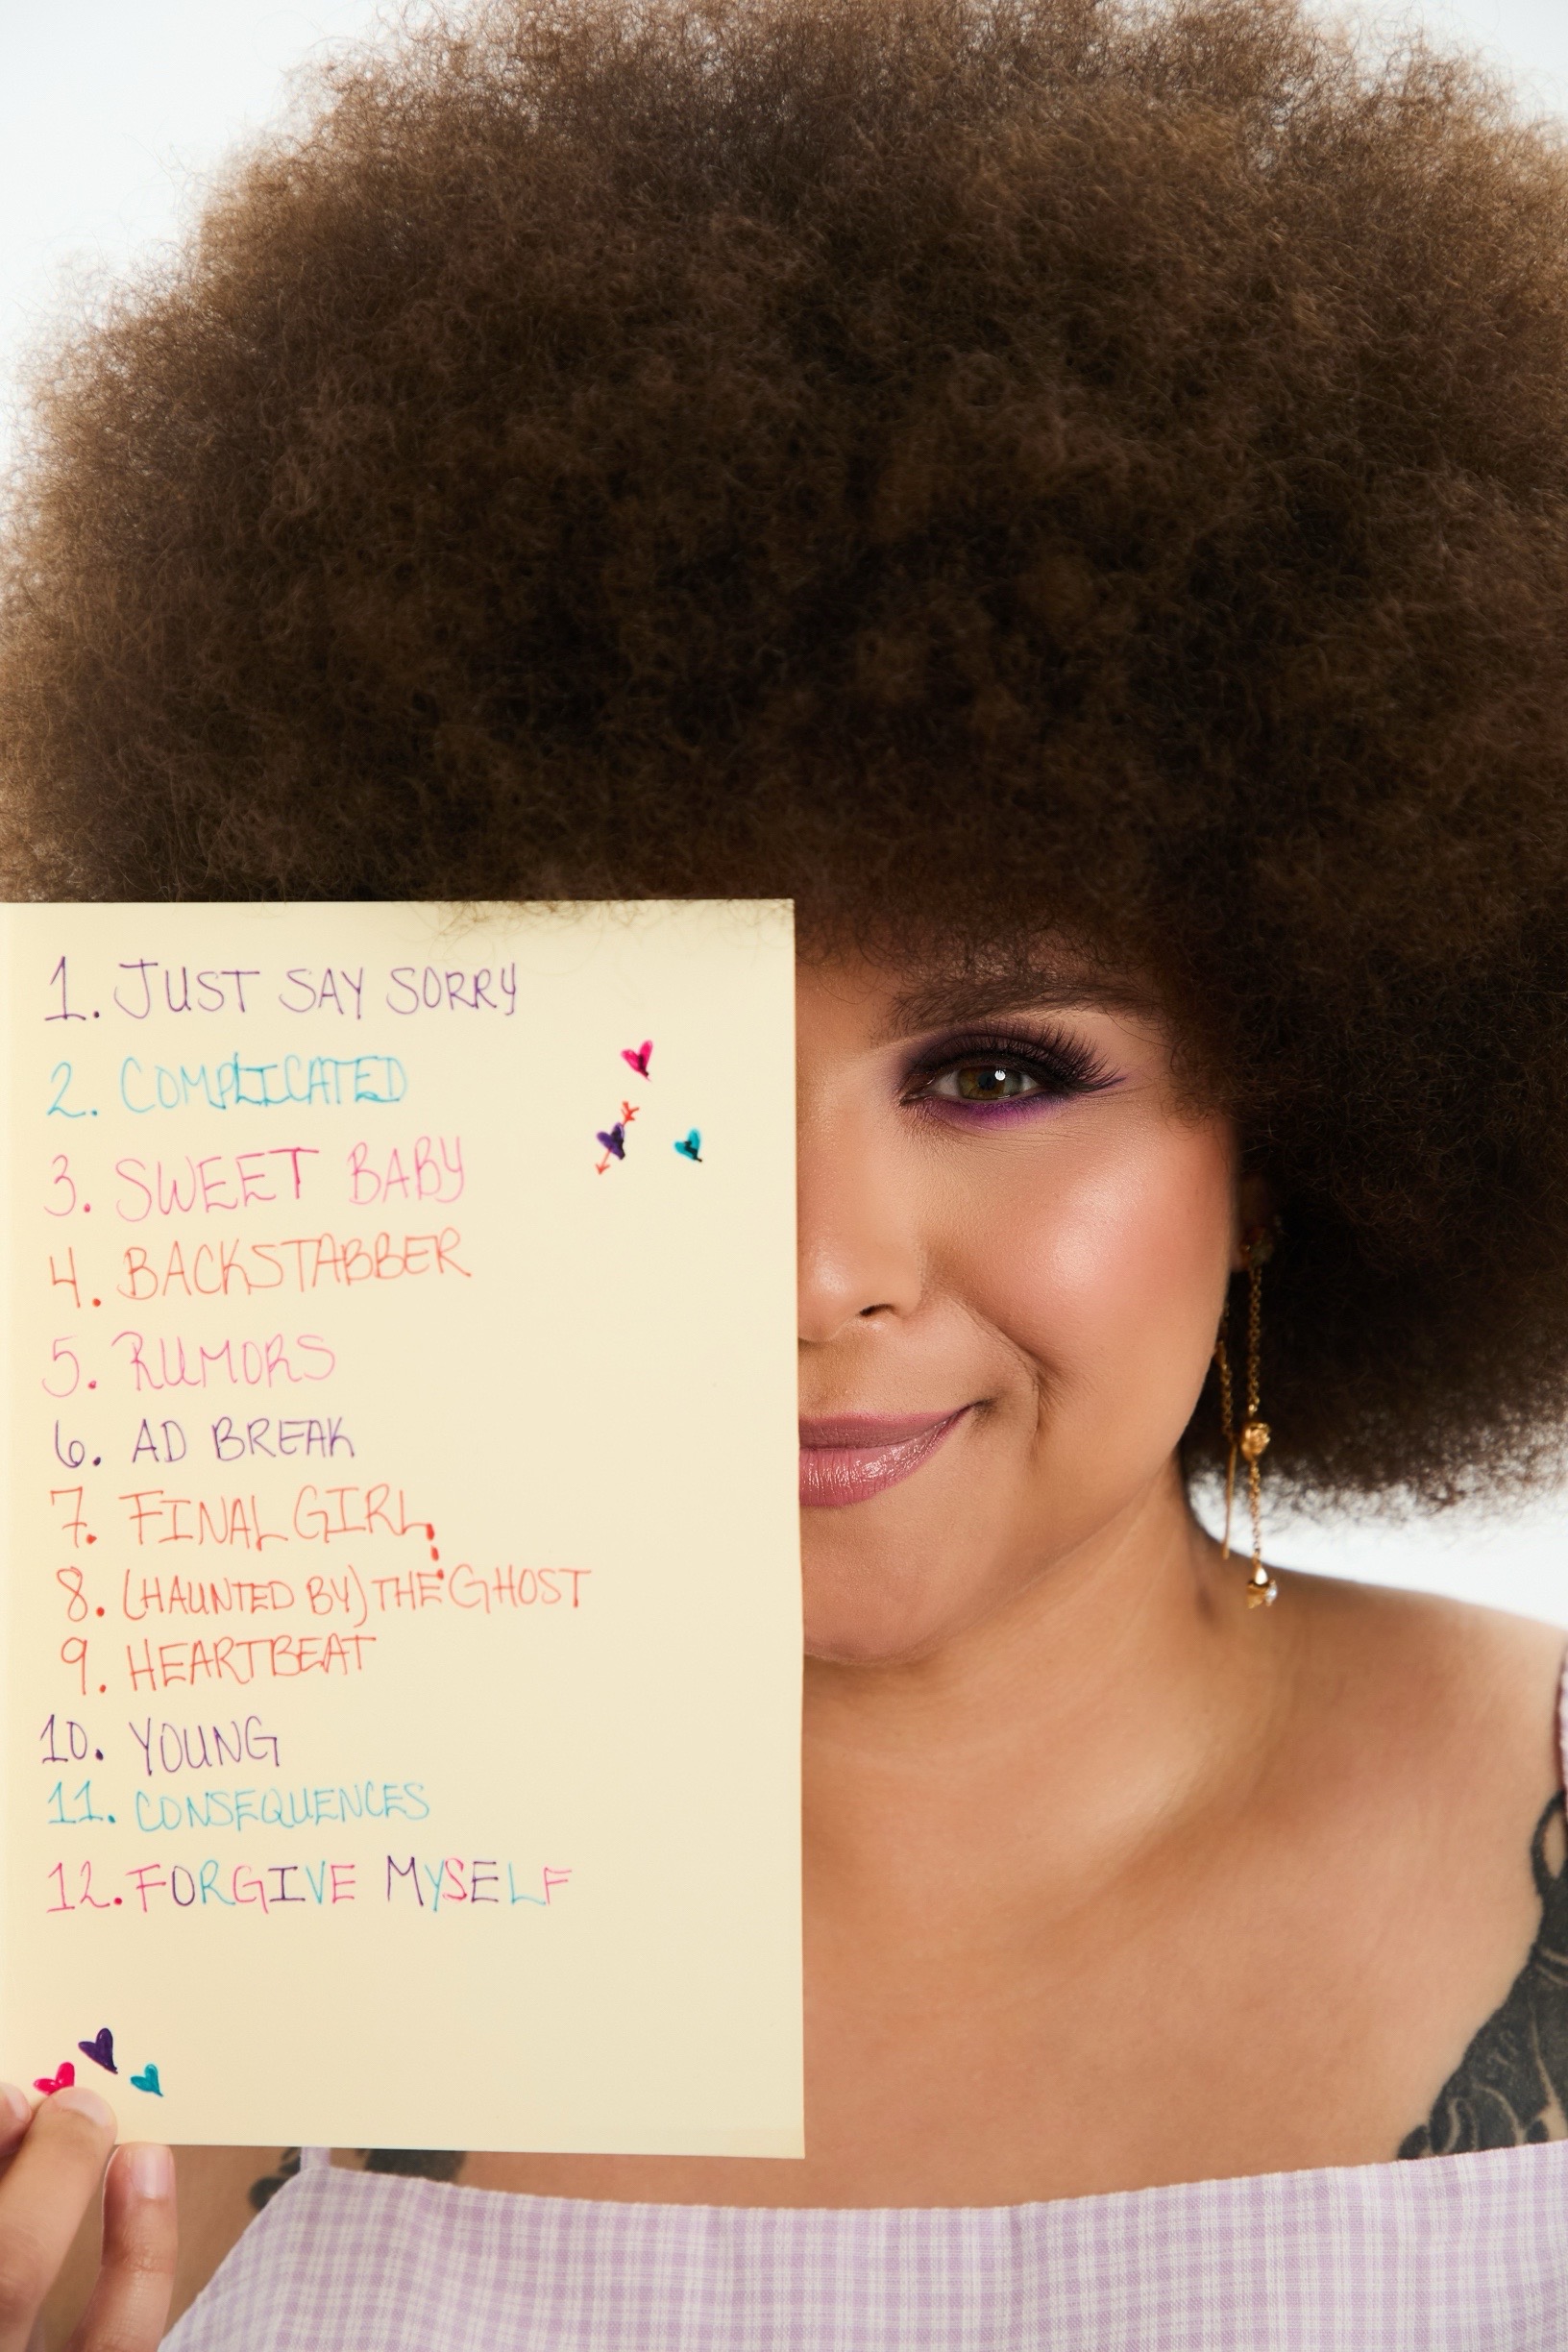 1. JUST SAY SORRY
2. COMPLICATED
3. SWEET BABY
4. BACKSTABBER
5. RUMORS
6. AD BREAK
7. FINAL GIRL
8. (HAUNTED BY) THE GHOST
9. HEARTBEAT
10. YOUNG
11. CONSEQUENCES
12. FORGIVE MYSELF